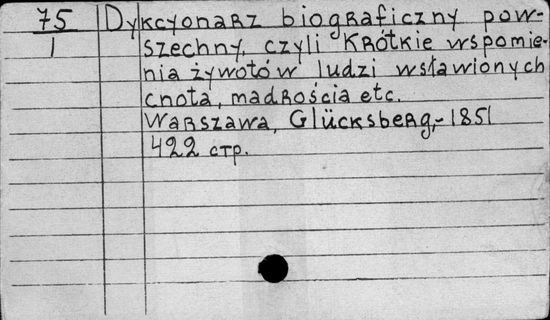 75
1
Dykcyonarz biograficzny pow-
szechny, czyli krótkie wspomie-
nia żywotów ludzi wsławionych
cnota, madrościa etc.
Warszawa, Glücksberg,-1851
422 стр.